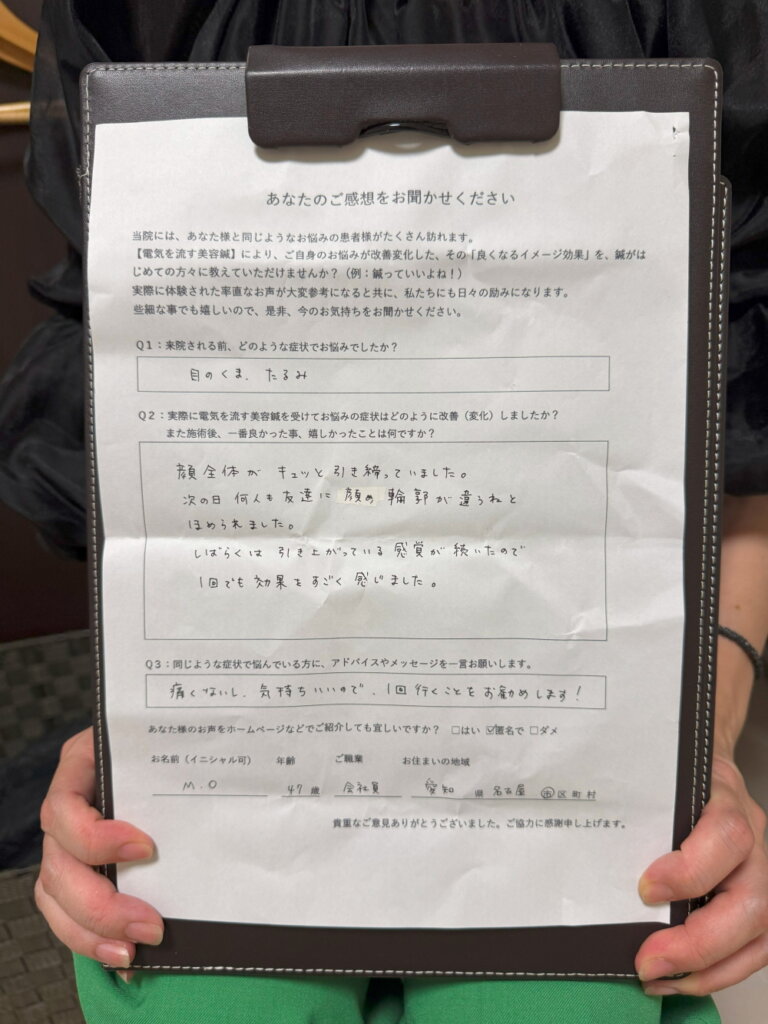 あなたのご感想をお聞かせください
当院には、あなた様と同じようなお悩みの患者様がたくさん訪れます。
【電気を流す美容鍼】により、ご自身のお悩みが改善変化した、その「良くなるイメージ効果」を、鍼がは
じめての方々に教えていただけませんか？（例：鍼っていいよね！）
実際に体験された率直なお声が大変参考になると共に、私たちにも日々の励みになります。
些細な事でも嬉しいので、是非、今のお気持ちをお聞かせください。
Q1：来院される前、どのような症状でお悩みでしたか？
目のくま、たるみ
Q2：実際に電気を流す美容鍼を受けてお悩みの症状はどのように改善（変化）しましたか？
また施術後、一番良かった事、嬉しかったことは何ですか？
顔全体が キュッと引き締っていました。
次の日 何人も友達に 顔の輪郭が違うねと
ほめられました。
しばらくは 引き上がっている感覚が続いたので
1回でも効果をすごく感じました。
Q3：同じような症状で悩んでいる方に、アドバイスやメッセージを一言お願いします。
痛くないし、気持ちいいので、1回行くことをお勧めします！
あなた様のお声をホームページなどでご紹介しても宜しいですか？ □はい ☑匿名で □ダメ
お名前（イニシャル可） 年齢 ご職業 お住まいの地域
M.O 47歳 会社員 愛知 県 名古屋 市区町村
貴重なご意見ありがとうございました。ご協力に感謝申し上げます。